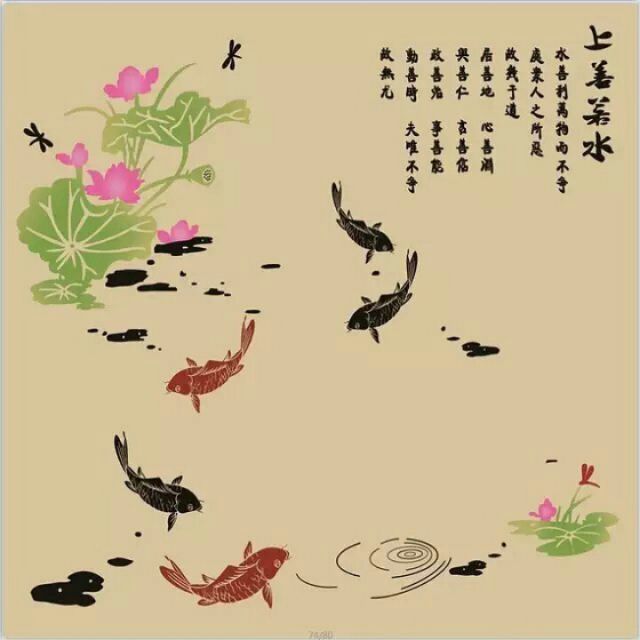 上善若水
水善利萬物而不爭
處衆人之所惡
故幾于道
居善地 心善淵
與善仁 言善信
政善治 事善能
動善時 夫唯不爭
故無尤
74/80